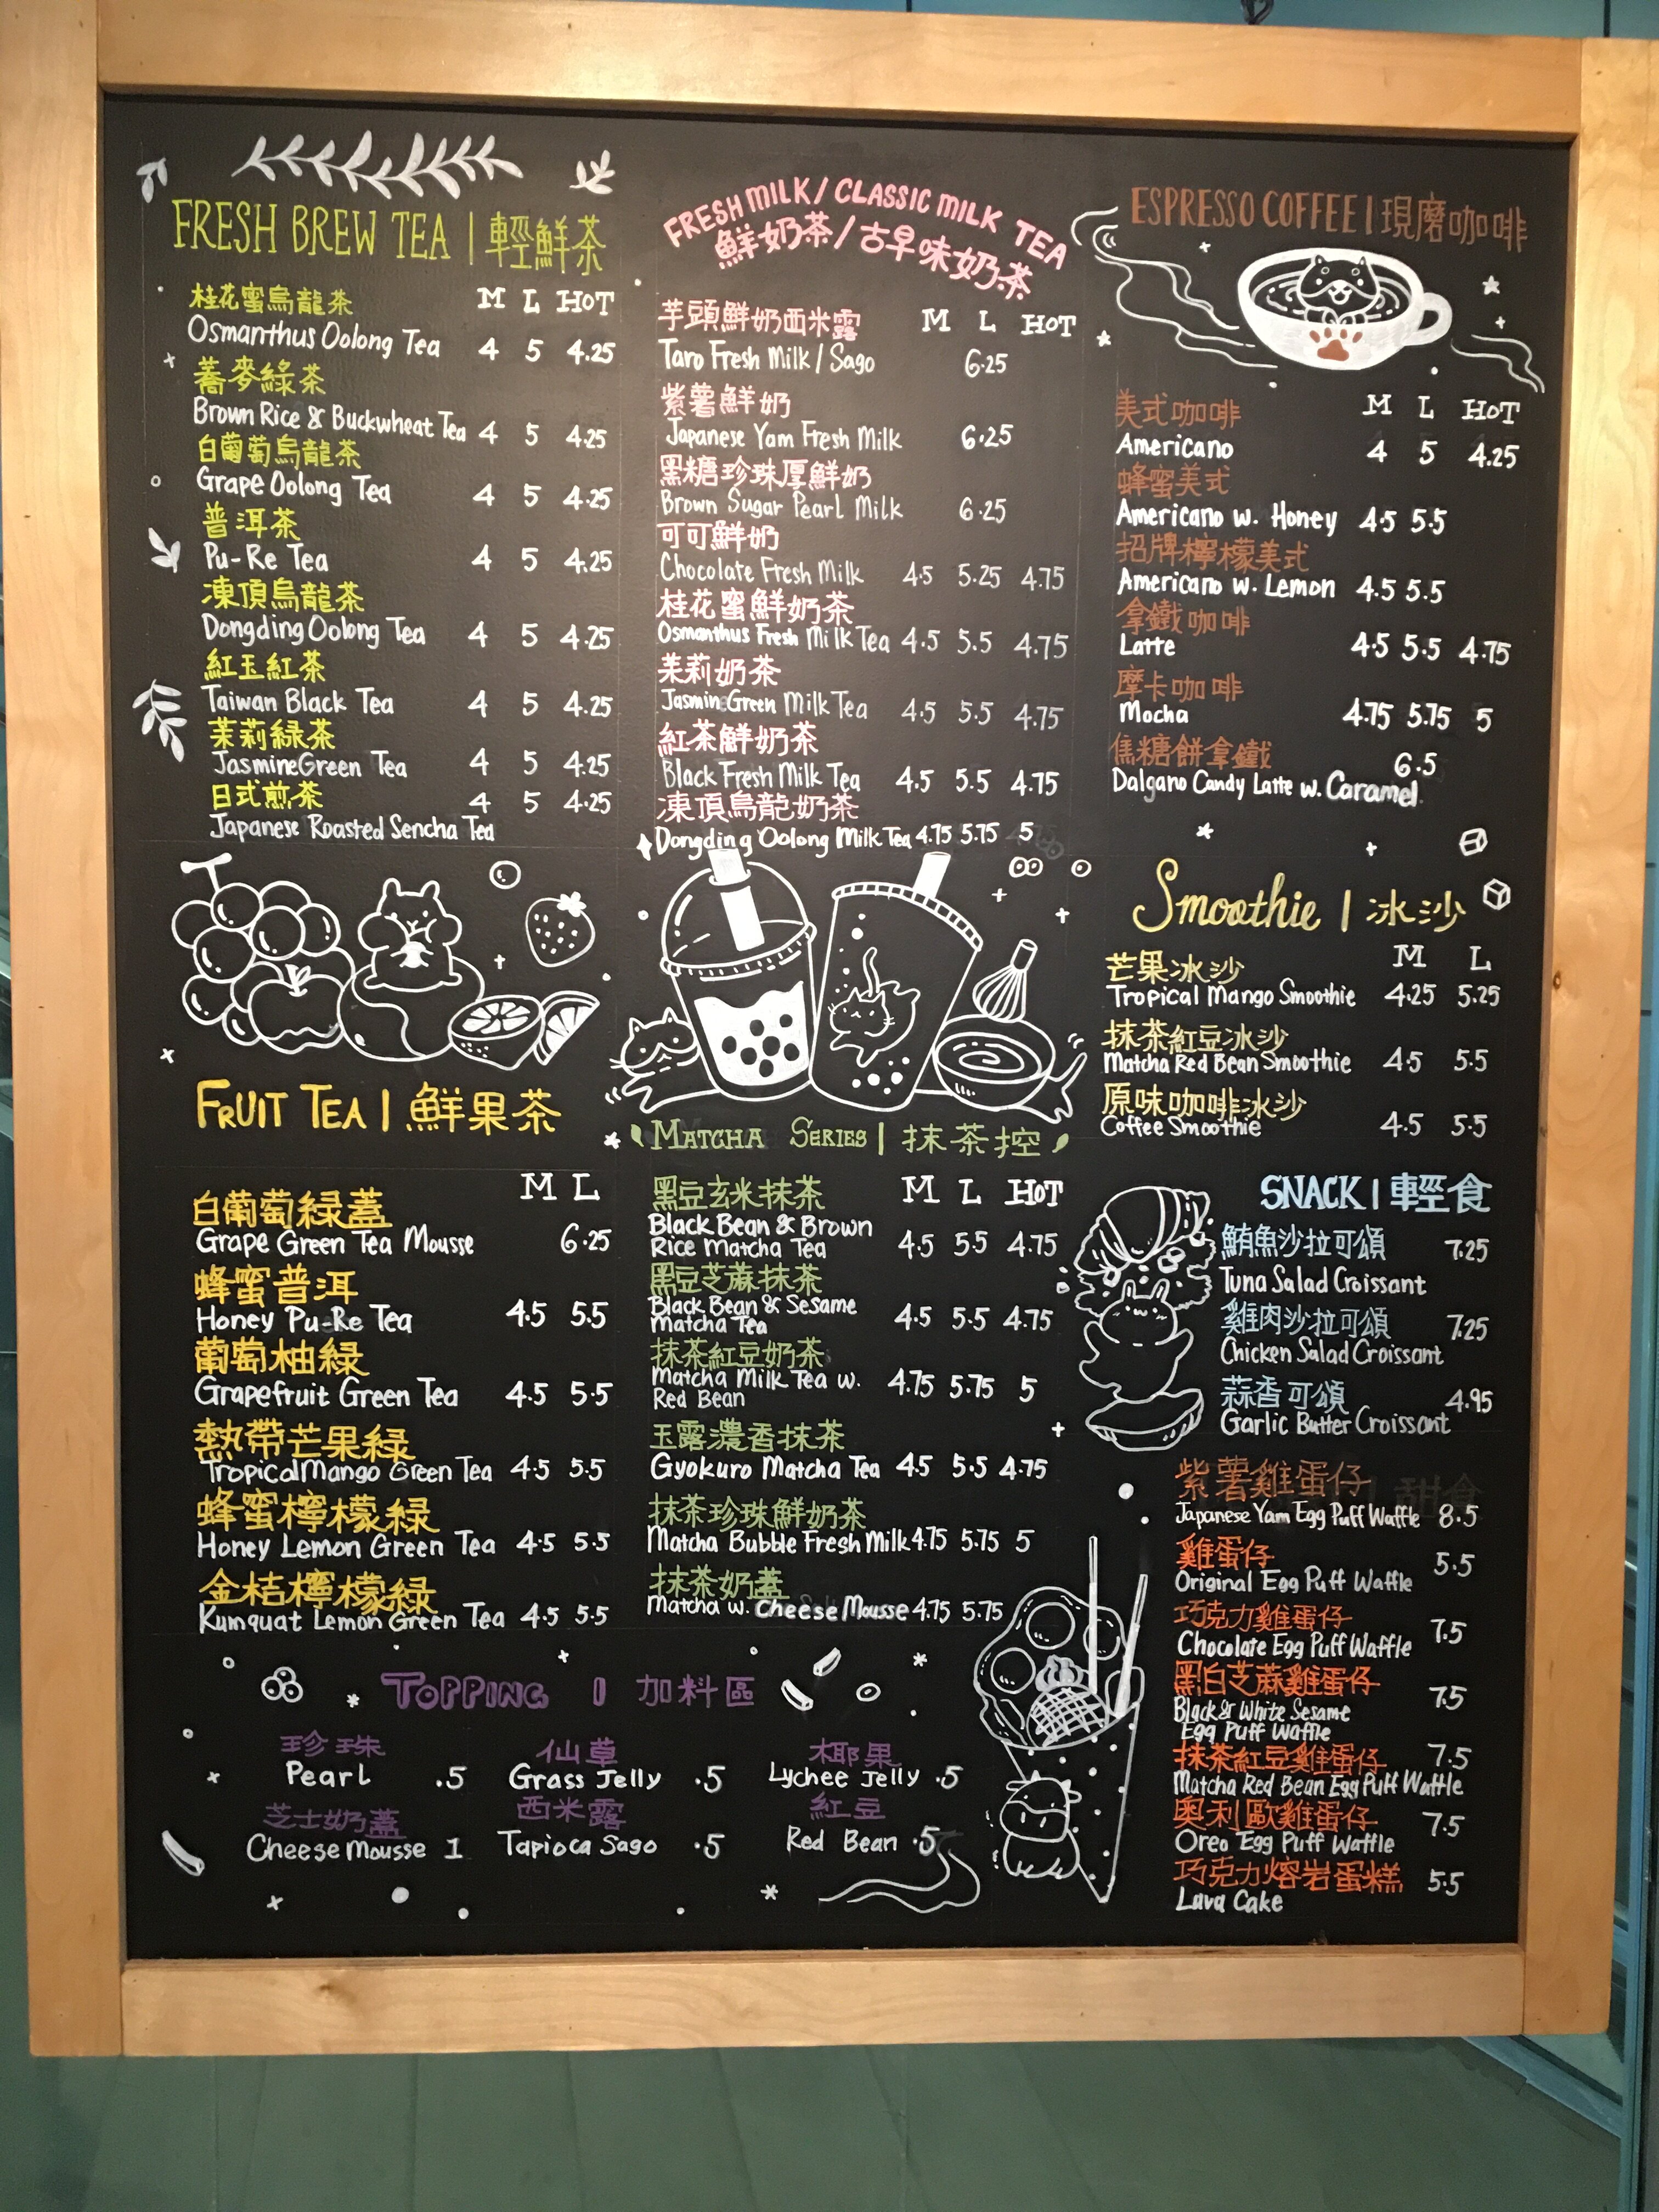 FRESH BREW TEA | 輕鮮茶
M L HOT
桂花蜜烏龍茶
Osmanthus Oolong Tea 4 5 4.25
蕎麥綠茶
Brown Rice & Buckwheat Tea 4 5 4.25
白葡萄烏龍茶
Grape Oolong Tea 4 5 4.25
普洱茶
Pu-Re Tea 4 5 4.25
凍頂烏龍茶
Dongding Oolong Tea 4 5 4.25
紅玉紅茶
Taiwan Black Tea 4 5 4.25
茉莉綠茶
Jasmine Green Tea 4 5 4.25
日式煎茶 4 5 4.25
Japanese Roasted Sencha Tea
FRUIT TEA | 鮮果茶
M L
白葡萄綠蓋
Grape Green Tea Mousse 6.25
蜂蜜普洱
Honey Pu-Re Tea 4.5 5.5
葡萄柚綠
Grapefruit Green Tea 4.5 5.5
熱帶芒果綠
Tropical Mango Green Tea 4.5 5.5
蜂蜜檸檬綠
Honey Lemon Green Tea 4.5 5.5
金桔檸檬綠
Kumquat Lemon Green Tea 4.5 5.5
FRESH MILK / CLASSIC MILK TEA
鮮奶茶/古早味奶茶
M L HOT
芋頭鮮奶西米露
Taro Fresh Milk / Sago 6.25
紫薯鮮奶
Japanese Yam Fresh Milk 6.25
黑糖珍珠厚鮮奶
Brown Sugar Pearl Milk 6.25
可可鮮奶
Chocolate Fresh Milk 4.5 5.25 4.75
桂花蜜鮮奶茶
Osmanthus Fresh Milk Tea 4.5 5.5 4.75
茉莉奶茶
Jasmine Green Milk Tea 4.5 5.5 4.75
紅茶鮮奶茶
Black Fresh Milk Tea 4.5 5.5 4.75
凍頂烏龍奶茶
Dongding Oolong Milk Tea 4.75 5.75 5
MATCHA SERIES | 抹茶控
M L HOT
黑豆玄米抹茶
Black Bean & Brown
Rice Matcha Tea 4.5 5.5 4.75
黑豆芝蔴抹茶
Black Bean & Sesame
Matcha Tea 4.5 5.5 4.75
抹茶紅豆奶茶
Matcha Milk Tea w.
Red Bean 4.75 5.75 5
玉露濃香抹茶
Gyokuro Matcha Tea 4.5 5.5 4.75
抹茶珍珠鮮奶茶
Matcha Bubble Fresh Milk 4.75 5.75 5
抹茶奶蓋
Matcha w. Cheese Mousse 4.75 5.75
ESPRESSO COFFEE | 現磨咖啡
M L HOT
美式咖啡
Americano 4 5 4.25
蜂蜜美式
Americano w. Honey 4.5 5.5
招牌檸檬美式
Americano w. Lemon 4.5 5.5
拿鐵咖啡
Latte 4.5 5.5 4.75
摩卡咖啡
Mocha 4.75 5.75 5
焦糖餅拿鐵 6.5
Dalgano Candy Latte w. Caramel
Smoothie | 冰沙
M L
芒果冰沙
Tropical Mango Smoothie 4.25 5.25
抹茶紅豆冰沙
Matcha Red Bean Smoothie 4.5 5.5
原味咖啡冰沙
Coffee Smoothie 4.5 5.5
SNACK | 輕食
鮪魚沙拉可頌 7.25
Tuna Salad Croissant
雞肉沙拉可頌 7.25
Chicken Salad Croissant
蒜香可頌 4.95
Garlic Butter Croissant
紫薯雞蛋仔
Japanese Yam Egg Puff Waffle 8.5
雞蛋仔 5.5
Original Egg Puff Waffle
巧克力雞蛋仔 7.5
Chocolate Egg Puff Waffle
黑白芝蔴雞蛋仔 7.5
Black & White Sesame
Egg Puff Waffle
抹茶紅豆雞蛋仔 7.5
Matcha Red Bean Egg Puff Waffle
奧利歐雞蛋仔 7.5
Oreo Egg Puff Waffle
巧克力熔岩蛋糕 5.5
Lava Cake
TOPPING | 加料區
珍珠 仙草 椰果
Pearl .5 Grass Jelly .5 Lychee Jelly .5
芝士奶蓋 西米露 紅豆
Cheese Mousse 1 Tapioca Sago .5 Red Bean .5